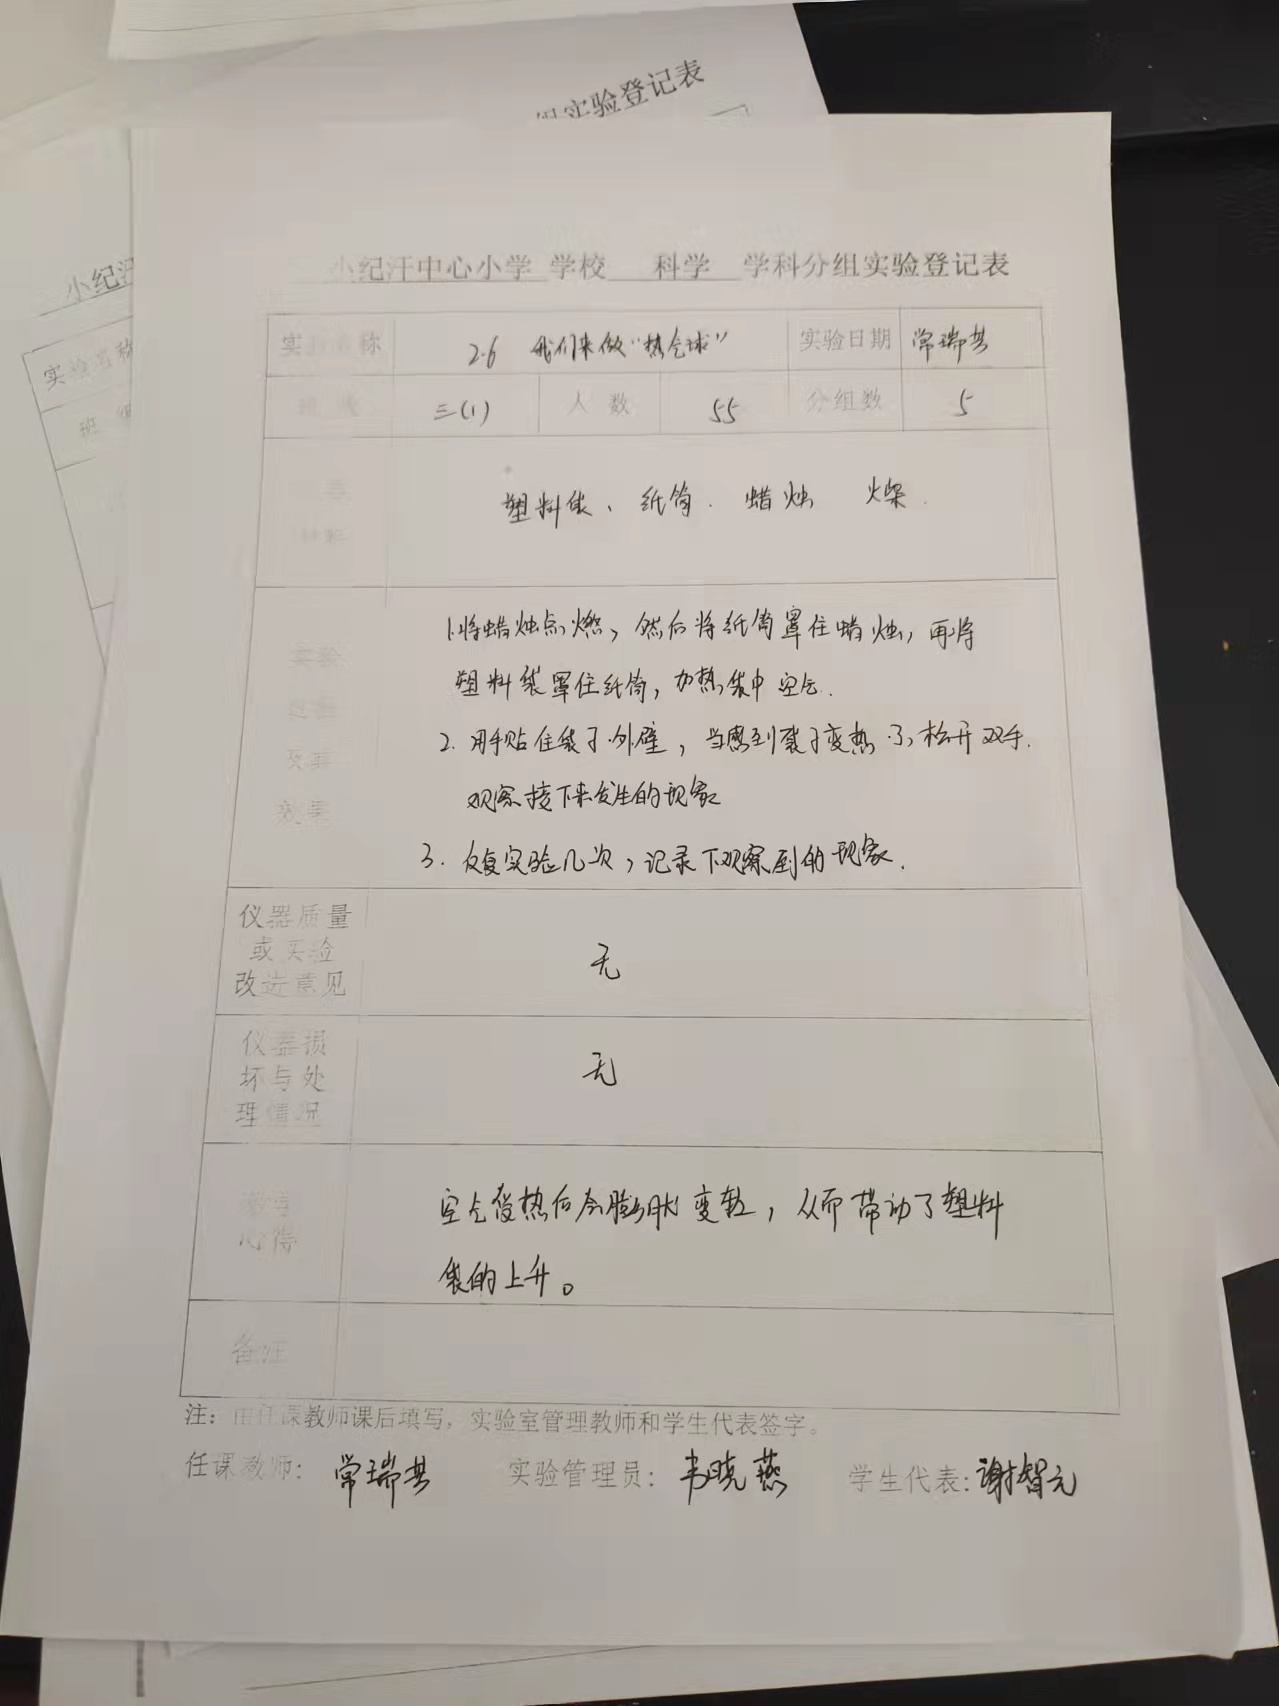 组实验登记表
小纪汗
实验名称
班级
小纪汗中心小学 学校 科学 学科分组实验登记表
实验名称 2.6 我们来做“热气球” 实验日期 常瑞芸
班级 三(1) 人数 55 分组数 5
塑料袋、纸筒. 蜡烛
材料
1.将蜡烛点燃，然后将纸筒罩住蜡烛，再将
实验
塑料袋罩住纸筒，加热袋中空气.
过程
2. 用手贴住袋子外壁，当感到袋子变热了，松开双手.
及其
观察接下来发生的现象
效果
3. 反复实验几次，记录下观察到的现象.
仪器质量
或实验
改进意见
无
仪器损
坏与处
理情况
无
空气受热后会膨胀变轻，从而带动了塑料
心得
袋的上升。
备注
注：由任课教师课后填写，实验室管理教师和学生代表签字。
任课教师：常瑞芸 实验管理员：韦晓燕 学生代表：谢智元